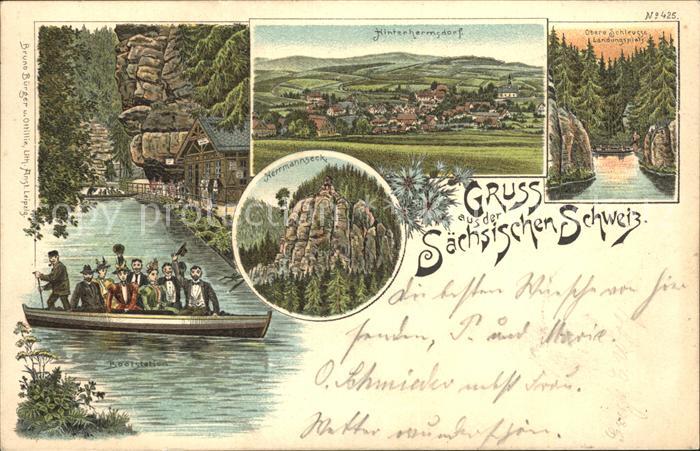 No 425.
Hinterhermsdorf.
Obere Schleusse
Landungsplatz
Bruno Bürger u. Ottillie, Lith. Anst. Leipzig.
Herrmannseck.
GRUSS
aus der
Sächsischen Schweiz.
Bootstation
Die besten Wünsche von hier
senden, P. und Marie.
O. Schmieder nebst Frau.
Wetter wunderschön.